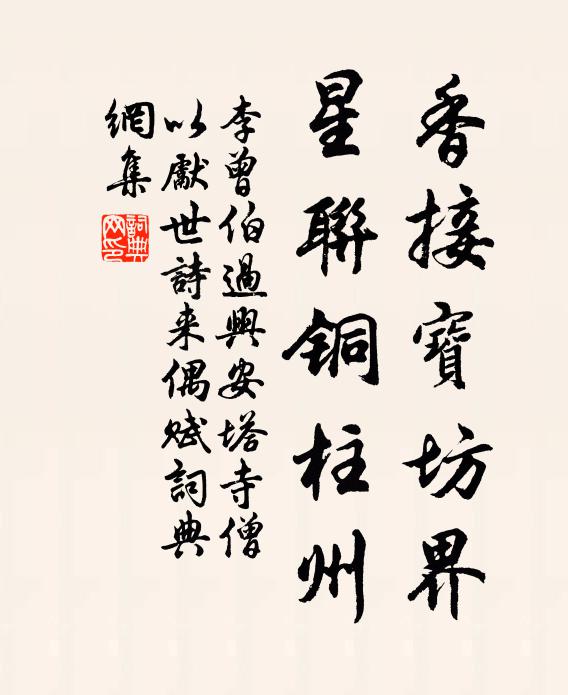 香接寶坊界
星聯铜柱州
李曾伯過興安塔寺僧
以獻世詩来偶赋詞典
網集
詞典網印